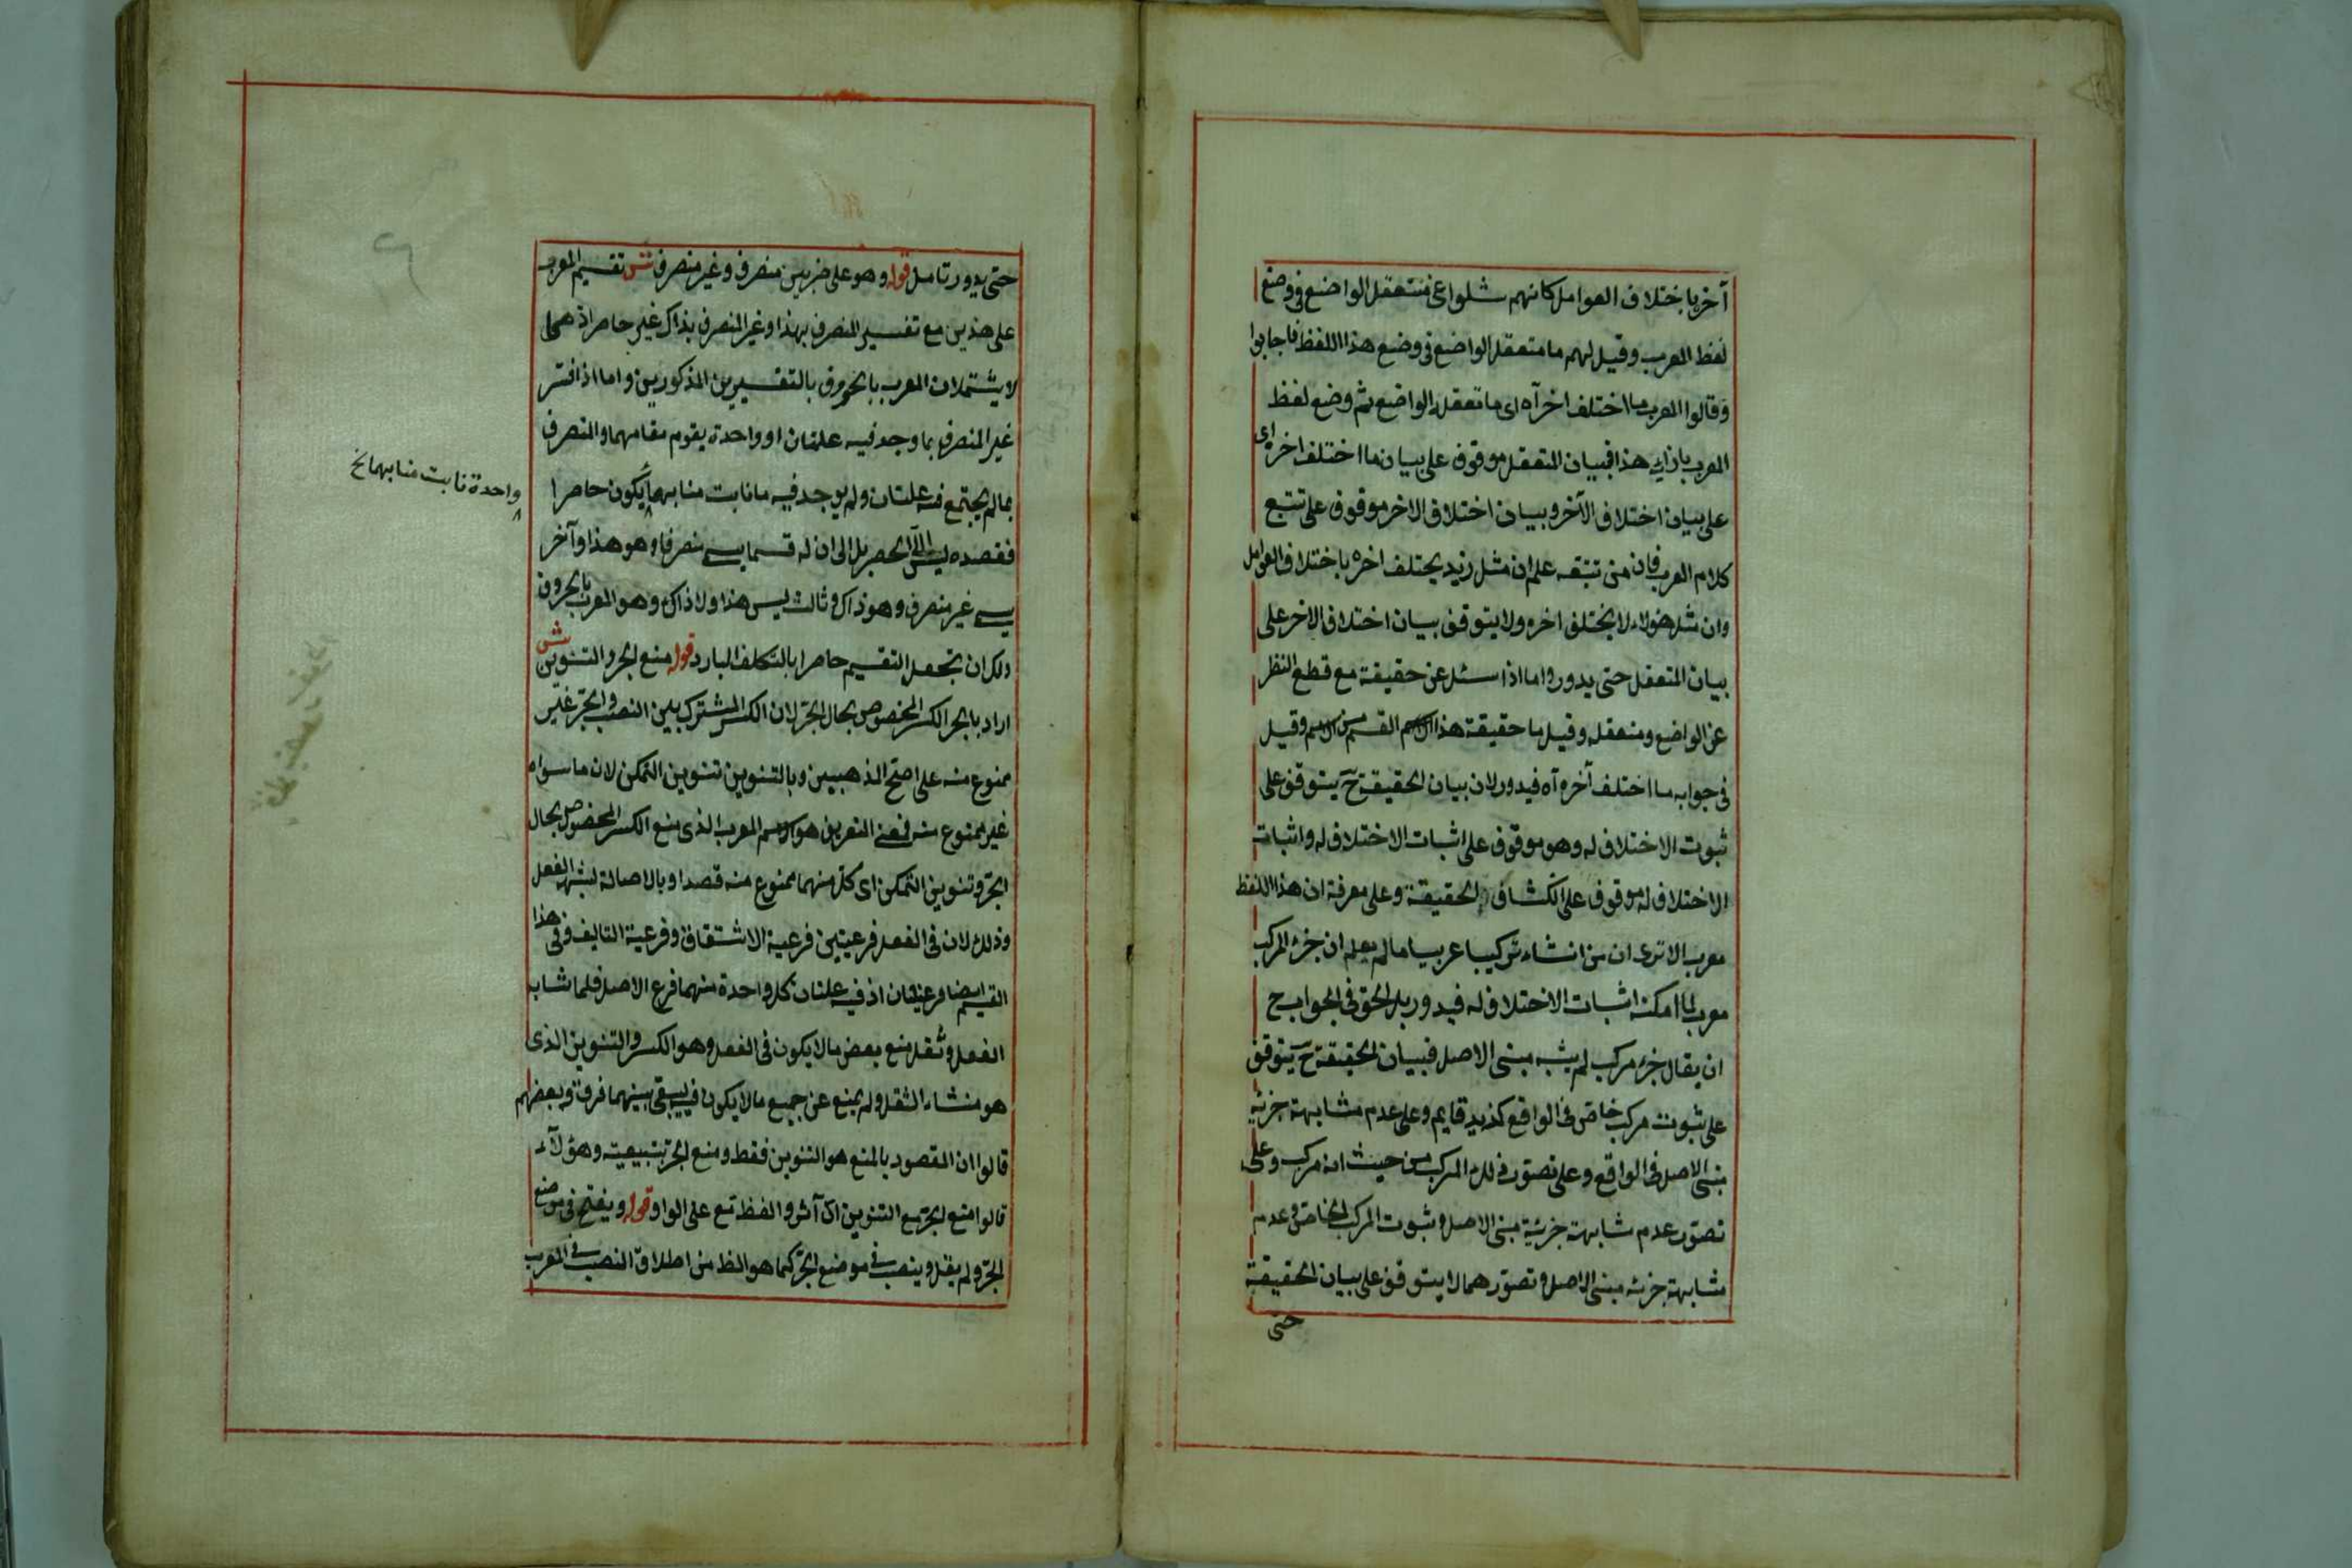 آخر باختلاف العوامل كانهم سئلوا عن متعقل الواضع فى وضع
لفظ المعرب وقيل لهم ما متعقل الواضع فى وضع هذا اللفظ فاجابوا
وقالوا المعرب ما اختلف اخرآه اى ما تعقل الواضع ثم وضع لفظ
المعرب بازاى هذا فبيان المتعقل موقوف على بيان ما اختلف اخره اى
على بيان اختلاف الآخر وبيان اختلاف الاخر موقوف على تتبع
كلام العرب فان من تتبعه علم ان مثل زيد يختلف اخره باختلاف العوامل
وان مثل هؤلاء لا يختلف اخره ولا يتوقف بيان اختلاف الاخر على
بيان المتعقل حتى يدور واما اذا سئل عن حقيقة مع قطع النظر
عن الواضع ومتعقله وقيل ما حقيقة هذا الاسم القسم من الاسم وقيل
فى جوابه ما اختلف آخره آه فيدور لان بيان الحقيقة ح يتوقف على
ثبوت الاختلاف له وهو موقوف على اثبات الاختلاف له واثبات
الاختلاف له موقوف على انكشاف الحقيقة وعلى معرفة ان هذا اللفظ
معرب الا ترى ان من انشاء تركيبا عربيا ما لم يعلم ان جزء المركب
معرب لما امكنه اثبات الاختلاف له فيدور بل الحق فى الجواب ح
ان يقال جزء مركب لم يشبه مبنى الاصل فبيان الحقيقة ح يتوقف
على ثبوت مركب خاص فى الواقع كزيد قايم وعلى عدم مشابهة جزئه
مبنى الاصل فى الواقع وعلى تصور ذلك المركب من حيث انه مركب وعلى
تصور عدم مشابهة جزئية مبنى الاصل وثبوت المركب الخاص وعدم
مشابهة جزئه مبنى الاصل وتصورهما لا يتوقف على بيان الحقيقة
حتى
حتى يدور تامل قوله وهو على ضربين منصرف وغير منصرف ش تقسيم المعرب
على هذين مع تفسير المنصرف بهذا وغير المنصرف بذاك غير حاصر اذ هما
لا يشتملان المعرب بالحروف بالتفسيرين المذكورين واما اذا فسر
غير المنصرف بما وجد فيه علتان او واحدة يقوم مقامهما والمنصرف
بما لم يجتمع فيه علتان ولم يوجد فيه ما نابت منابهما يكون حاصرا
واحدة نابت منابهما نخ
فقصده ليس الى الحصر بل الى ان له قسما يسمى منصرفا وهو هذا وآخر
يسمى غير منصرف وهو ذاك وثالث ليس هذا ولا ذاك وهو المعرب بالحروف
ولك ان تجعل التقسيم حاصرا بالتكلف البارد قوله منع الجر والتنوين ش
اراد بالجر الكسر المخصوص بحال الجر لان الكسر المشترك بين النصب والجر غير
ممنوع منه على اصح المذهبين وبالتنوين تنوين التمكن لان ما سواه
غير ممنوع منه فمعنى التعريف هو الاسم المعرب الذى منع الكسر المخصوص بحال
الجر وتنوين التمكن اى كل منهما ممنوع منه قصدا وبالاصالة لشبه الفعل
وذلك لان فى الفعل فرعيتين فرعية الاشتقاق وفرعية التاليف وفى هذا
القسم ايضا فرعيتان اذ فيه علتان كل واحدة منهما فرع الاصل فلما شابه
الفعل وثقل منع بعض ما لا يكون فى الفعل وهو الكسر والتنوين الذى
هو منشاء الثقل ولم يمنع عن جميع ما لا يكون فيه ليبقى بينهما فرق وبعضهم
قالوا ان المقصود بالمنع هو التنوين فقط ومنع الجر بتبيعيته وهؤلآء
قالوا منع الجر مع التنوين اك آش والفظ مع على الواو قوله ويفتح فى موضع
الجر ولم يقل وينصب فى موضع الجر كما هو الظ من اطلاق النصب فى المعرب